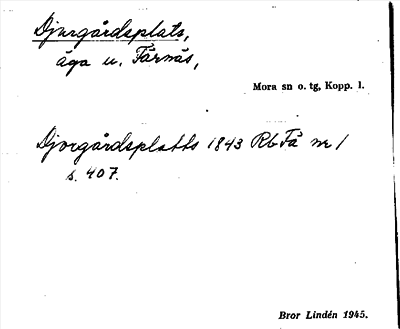 Djurgårdsplats,
äga u. Färnäs,
Mora sn o. tg, Kopp. l.
Djorgårdsplatts 1843 Rb Få nr 1
s. 407.
Bror Lindén 1945.